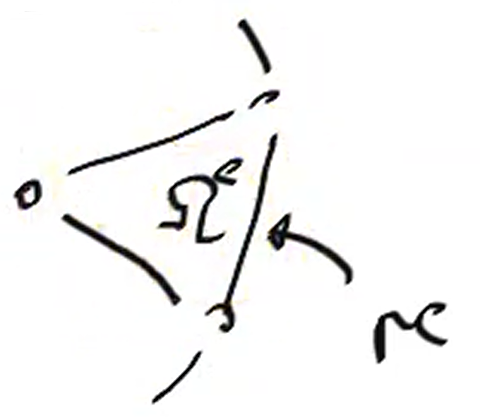 Ωᵉ
Γᵉ